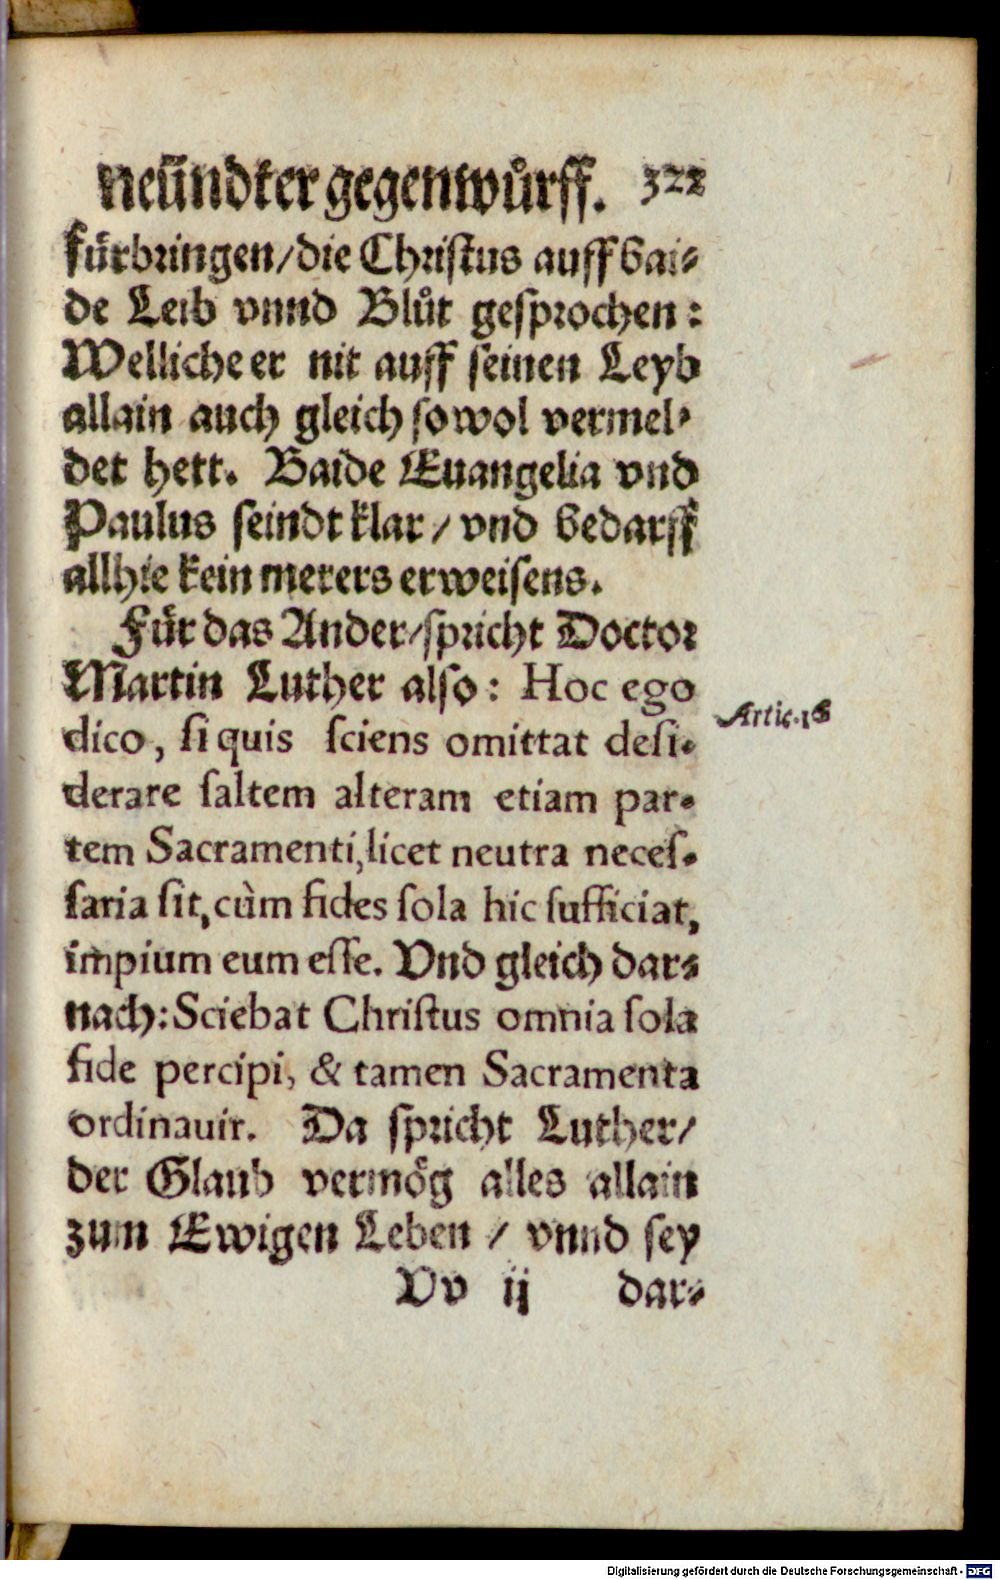 neündter gegenwůrff. 322
fürbringen/die Christus auff bai⸗
de Leib vnnd Blůt gesprochen:
Welliche er nit auff seinen Leyb
allain auch gleich so wol vermel⸗
det hett. Baide Euangelia vnd
Paulus seindt klar/ vnd bedarff
allhie kein merers erweisens.
Für das Ander/spricht Doctor
Martin Luther also: Hoc ego
Artic. 16
dico, si quis sciens omittat desi-
derare saltem alteram etiam par-
tem Sacramenti, licet neutra neces-
saria sit, cùm fides sola hic sufficiat,
impium eum esse. Vnd gleich dar⸗
nach: Sciebat Christus omnia sola
fide percipi, & tamen Sacramenta
ordinauit. Da spricht Luther/
der Glaub vermög alles allain
zum Ewigen Leben / vnnd sey
Vv ij dar⸗
Digitalisierung gefördert durch die Deutsche Forschungsgemeinschaft - DFG